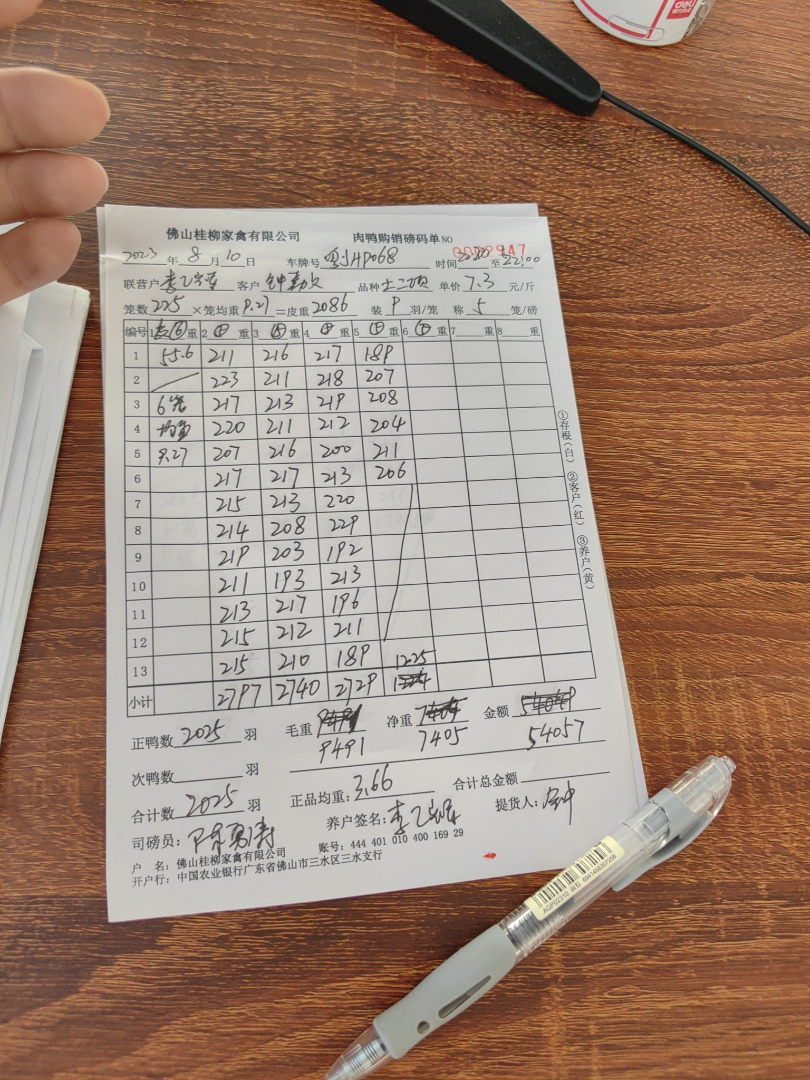 deli
佛山桂柳家禽有限公司 肉鸭购销磅码单NO 0002947
2023年8月10日 车牌号 粤JHP068 时间 至22:00
联营户 客户 品种土二项 单价7.3元/斤
笼数225×笼均重9.27=皮重2086 装9羽/笼 称5笼/磅
编号 1 重 2 重 3 重 4 重 5 重 6 重 7 重 8 重
1 55.6 211 216 217 189
2 223 211 218 207
3 6笼 217 213 219 208
4 均重 220 211 212 204
5 9.27 207 216 200 211
6 217 217 213 206
7 215 213 220
8 214 208 229
9 219 203 192
10 211 193 213
11 213 217 196
12 215 212 211
13 215 210 189 1225
小计 2797 2740 2729
正鸭数2025羽 毛重 净重 金额
9491 7405 54057
次鸭数 羽
合计数2025羽 正品均重:3.66 合计总金额
司磅员: 养户签名: 提货人:
户 名:佛山桂柳家禽有限公司 账号:444 401 010 400 169 29
开户行:中国农业银行广东省佛山市三水区三水支行
①存根(白) ②客户(红) ③养户(黄)